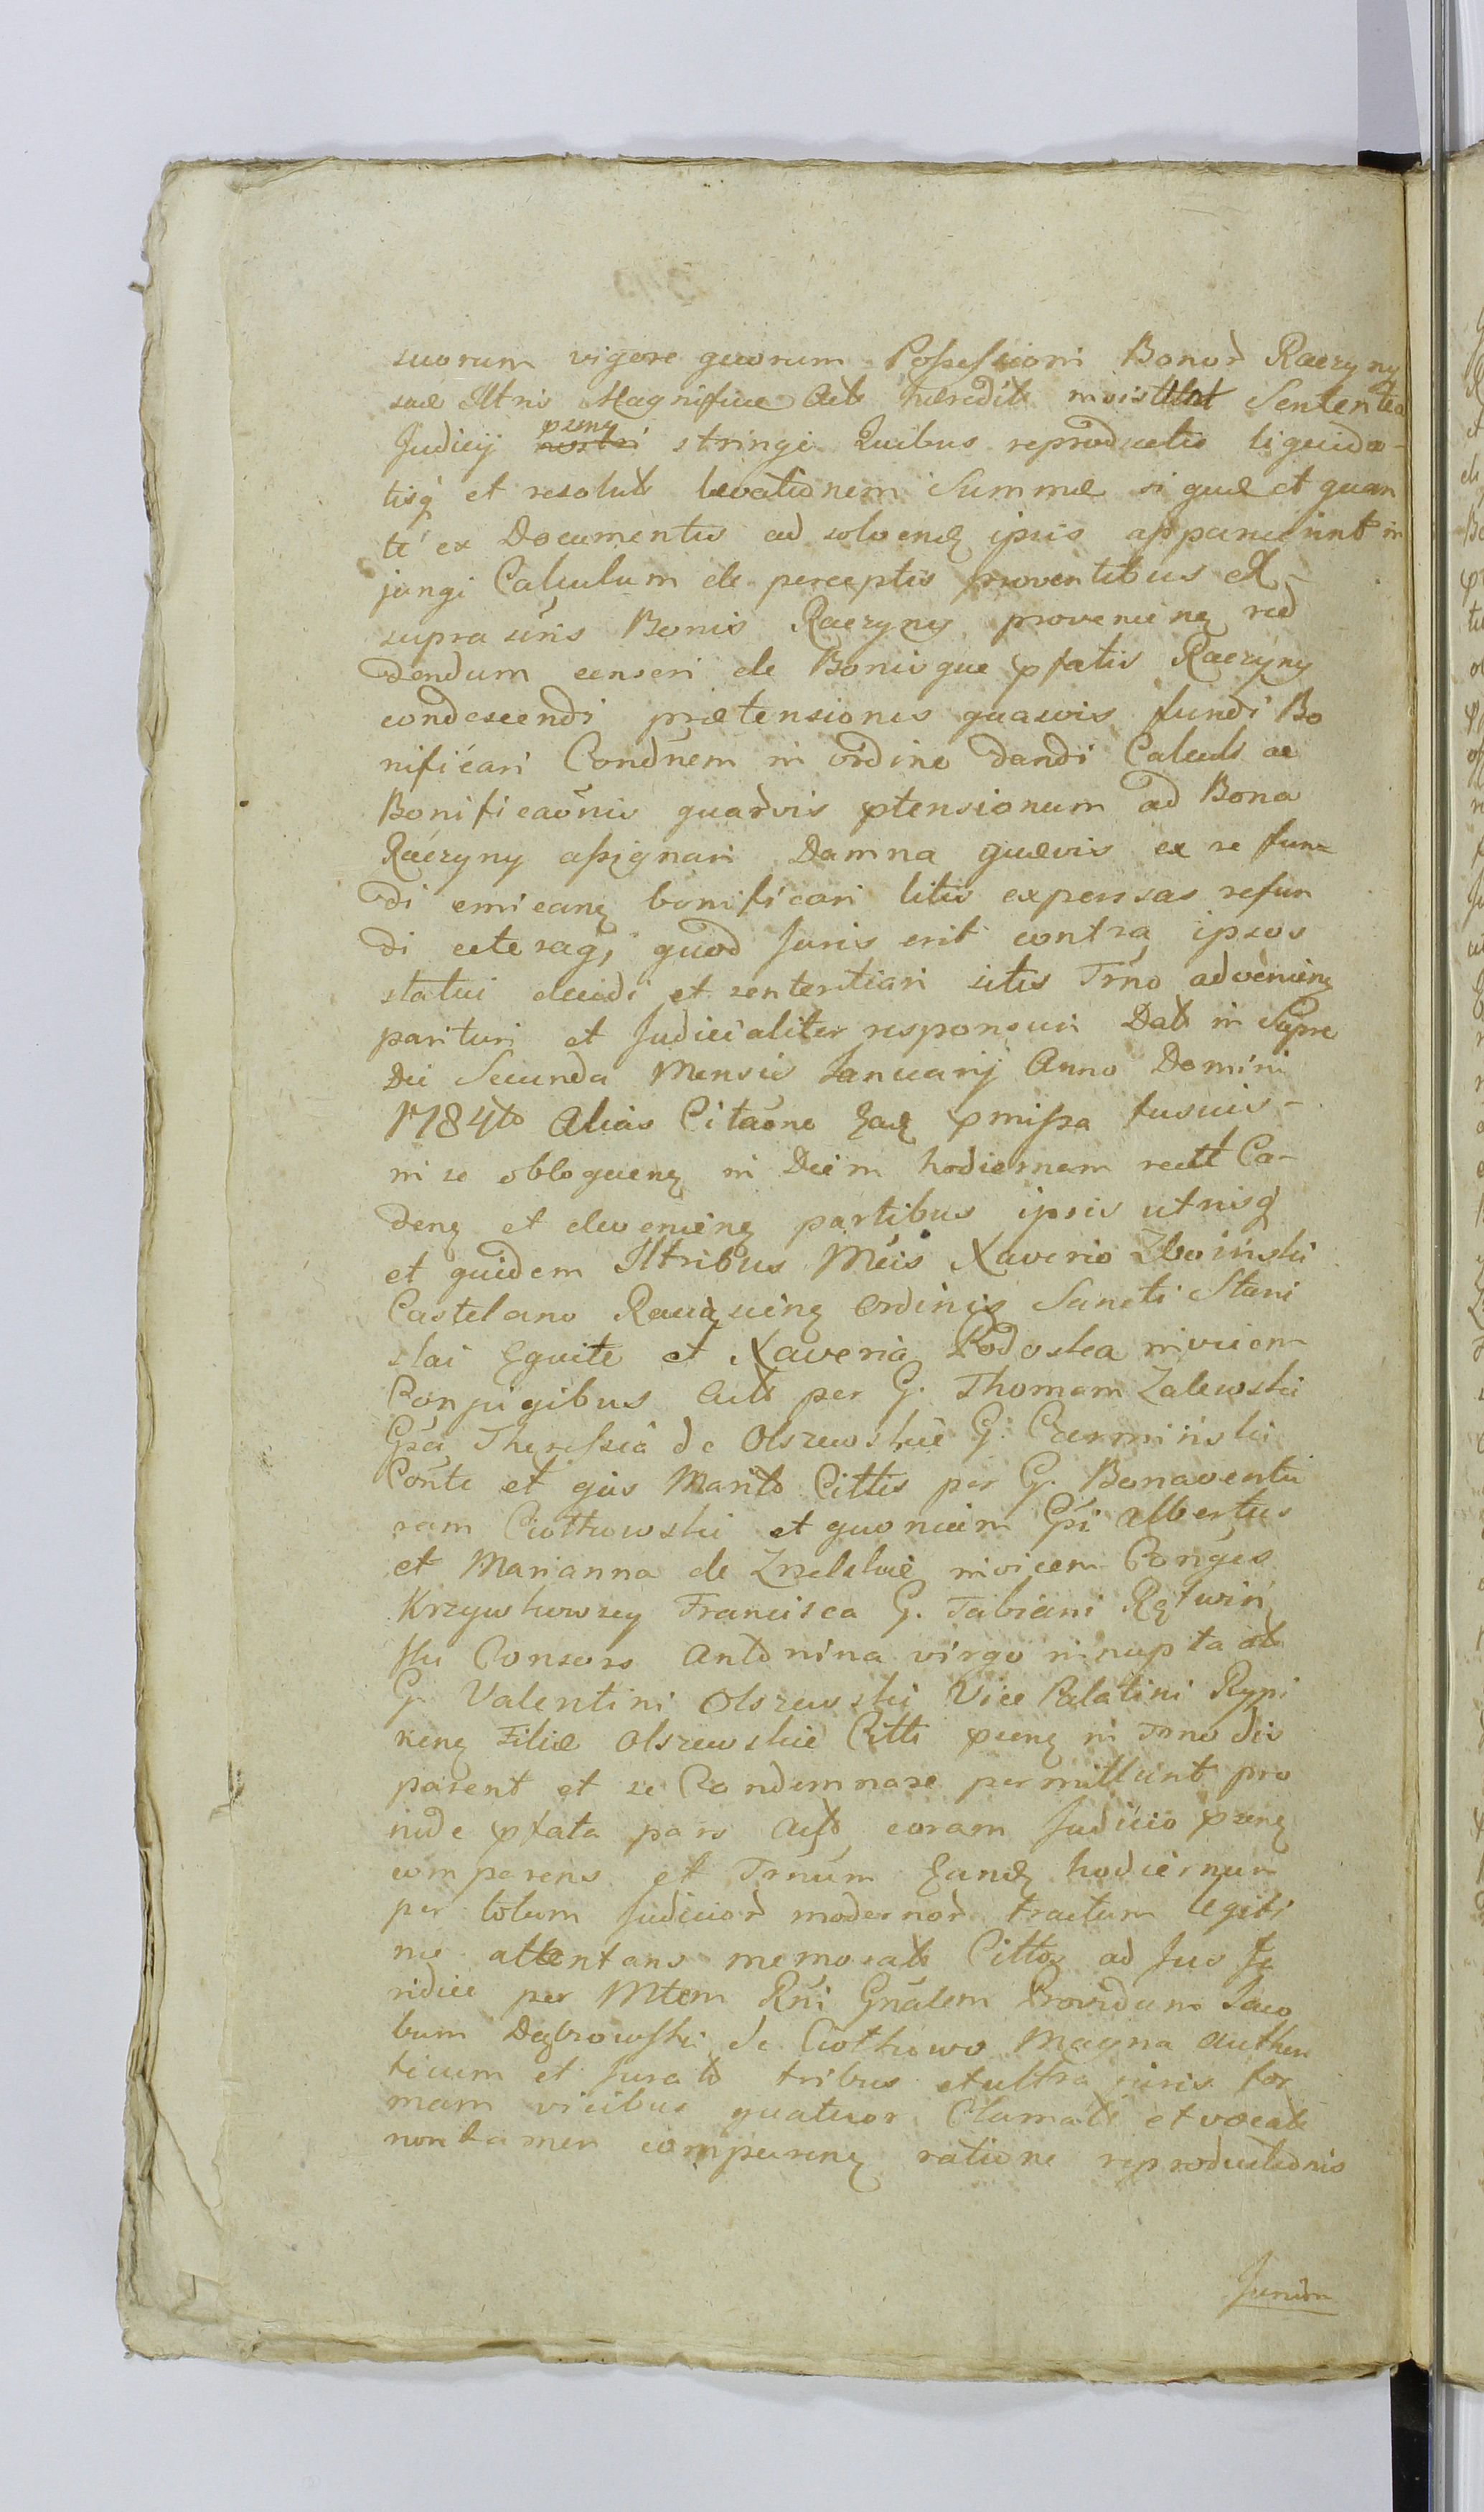 suorum vigore quorum Possessioni Bonor̃ Raczyny
suæ Illtris Magnificæ Act̃ hæredit̃ Sententia
Judicij prñẽ stringi Quibus reproductis liquida-
tisq́ et resolut̃ levationem Summæ si quæ et quan
tæ ex Documentis ad solvenđ ipsis apparuerint in
jungi Calculum de perceptis proventibus ex
supra sc̃ris Bonis Raczyny proveñieñ red
dendum censeri de Bonisque pfatis Raczyny
condescendi prætensiones quasvis fundi Bo
nificari Condñem in ordine dandi Calculi ac
Bonificaõnis quar̃vis ptensionum ad Bona
Raczyny assignari Damna quævis ex re fun=
di emicañ bonificari litis expensas refun
di cæteraq́, quod Juris erit contra ipsos
statui decidi et sententiari sitis Trño advenieñ
parituri et Judicialiter responsuri Dat̃ in Lipno
Die Secunda Mensis Januarij Anno Domini
1784to Alias Citaõne eađ pmissa fusius-
in se obloqueñ in Diem hodiernam rectè Ca-
deñ et devenieñ partibus ipsis utrisq́
et quidem Illtribus Mcis Xaverio Zboiński
Castelano Raciązieñ Ordinis Sancti Stani
slai Equite et Xaveria Podoska invicem
Conjugibus Act̃ per G. Thomam Zalewski
Gsa Theressia de Olszewskie G. Czermiński
Coñte et ejus Marito Cittis per G. Bonaventu
ram Ciołkowski et quoniam Gsi Albertus
et Marianna de invicem Conģes
Krzywkowscy Francisca G. Fabiani Rętwiń
ski Consors Antonina virgo innupta
G. Valentini Olszewski Vice Palatini Rypi
neñ Filiæ Olszewskie Citti pseñ in Trno dis
parent et se Condemnare permittunt pro
inde pfata pars Act̃ coram Judicio prñẽ
comparens et Trñum eunđ hodiernum
per totum Judicior̃ modernor̃ tractum legiti
me attentans memorat̃ Cittos ad Jus Ju
ridice per Mtem Rñi Gñalem Providum Jaco
bum Dąbrowski de Ciołkowo Magna authen
ticum et Jurat̃ tribus et ultra juris for
mam vicibus quatuor Clamat̃ et vocat̃
non tamen compareñ ratione reproductionis
Jurium